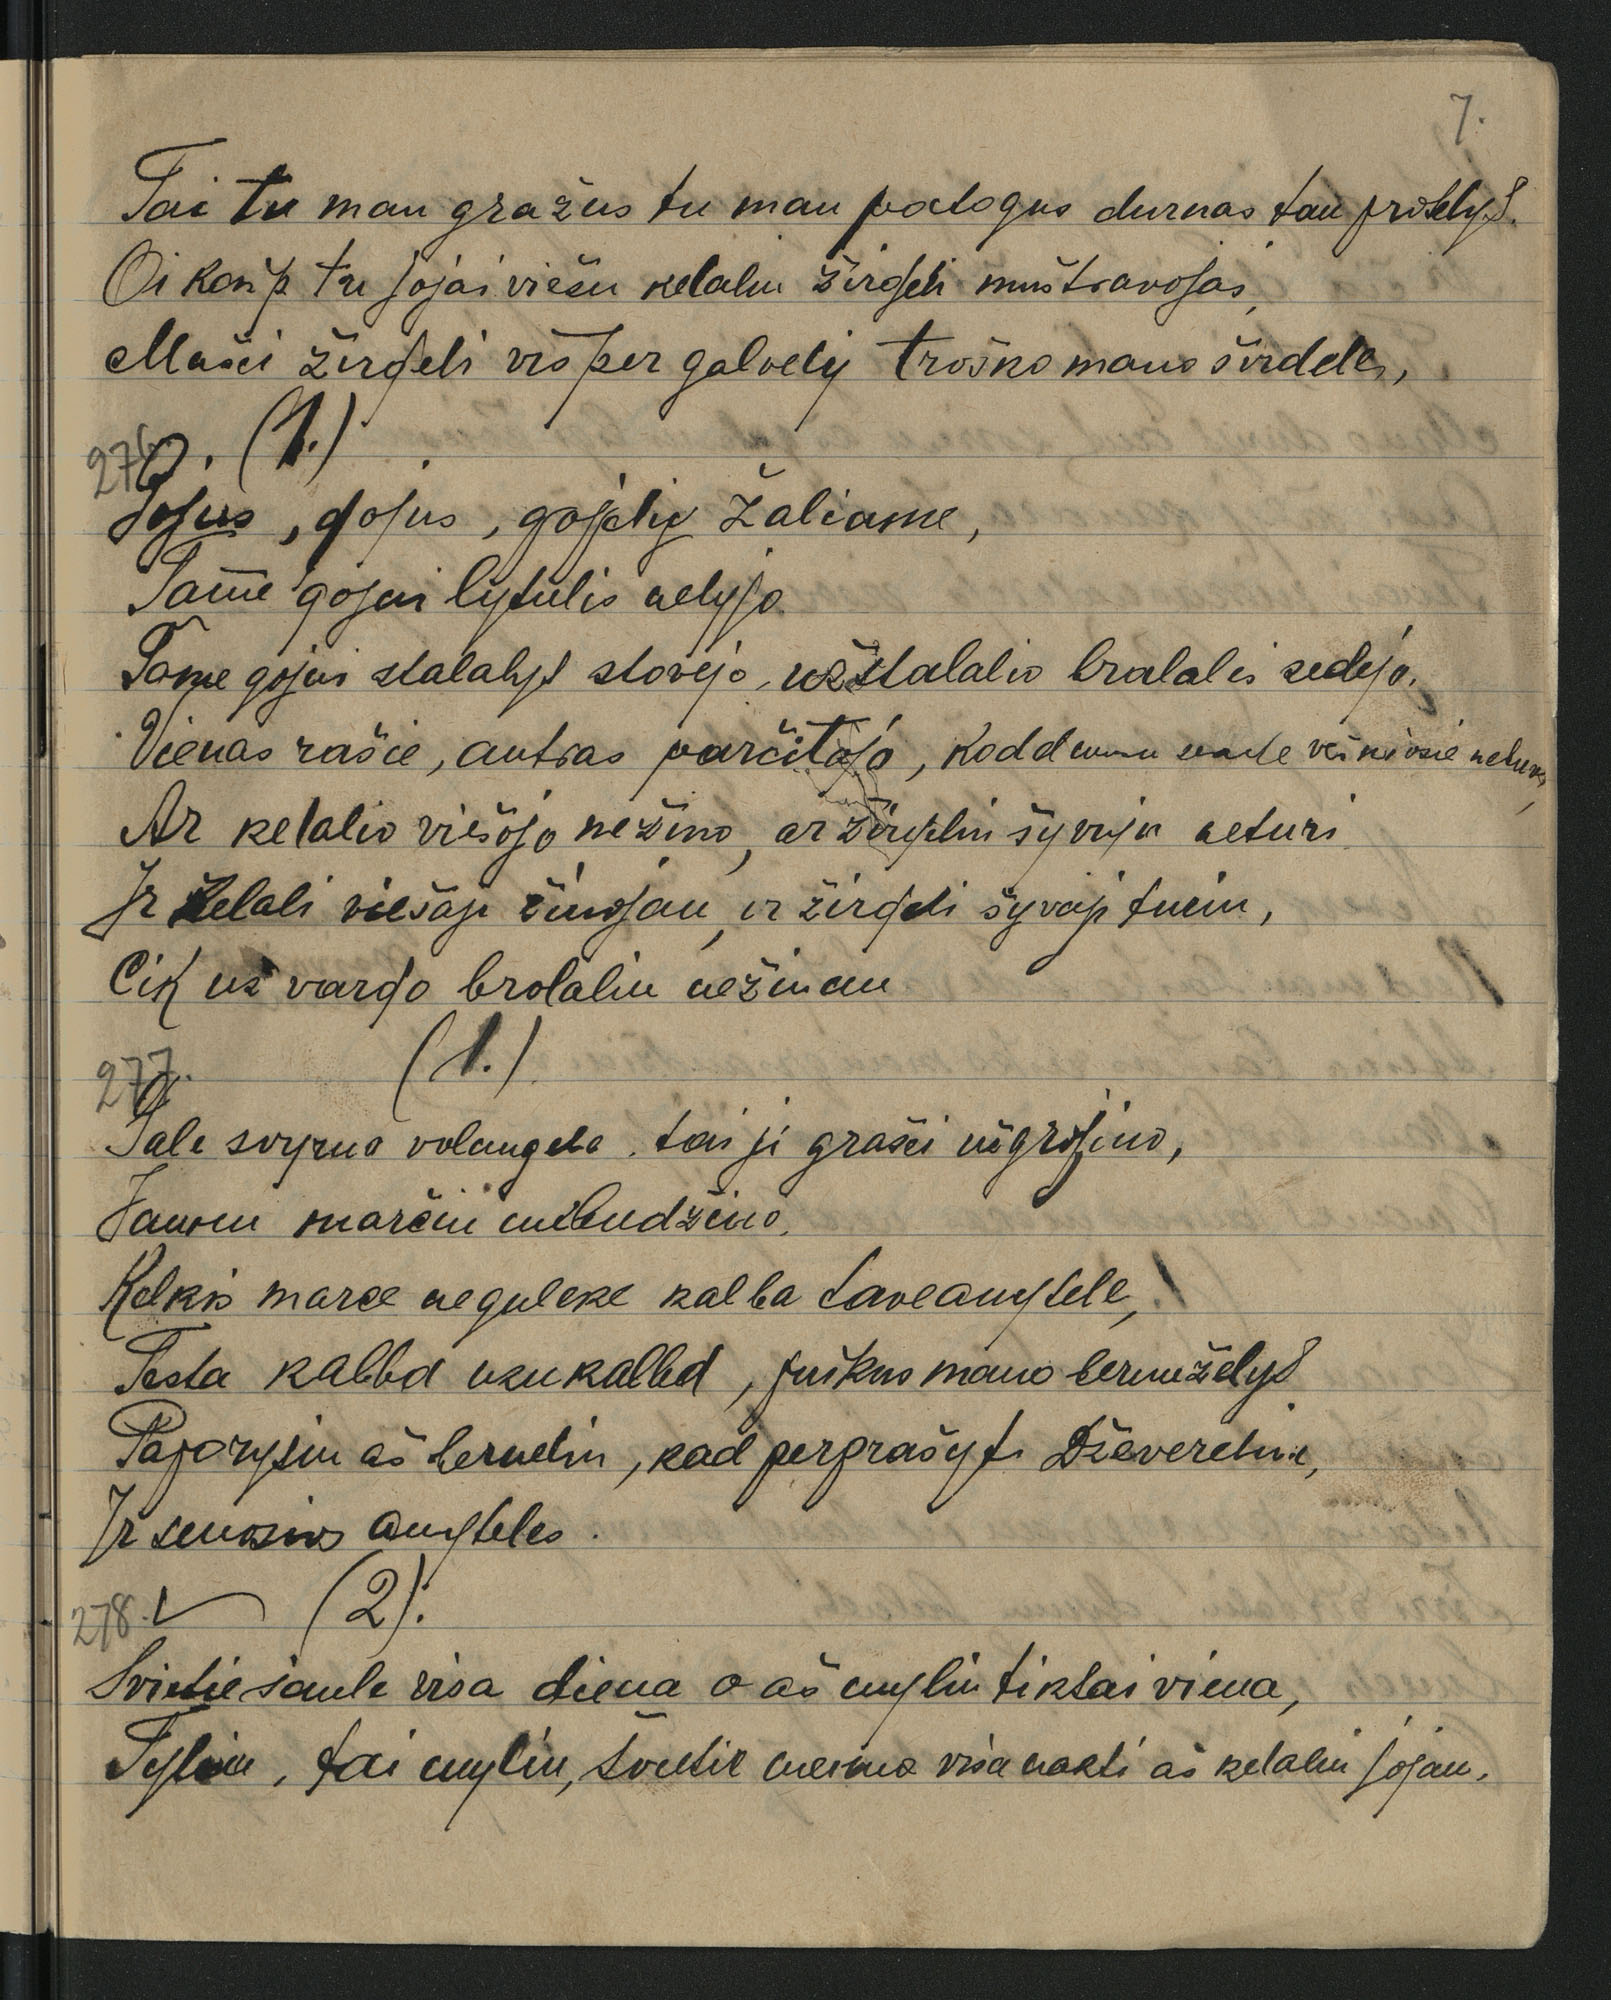 7.
Tai tu man gražus tu man patogus durnas tau protelys.
Oi kaip tu jojai viešu kelaliu žirgeli muštravojai,
Mašei žirgeli viš per galvely troško mano širdele,
276. (1.)
Gojus, gojus, gojely žaliame,
Tame gojui lytulis nelyjo
Tame gojui stalalys stovėjo, užstalalio bralalis sedėjo.
Vienas rašie, antras parčitojo, kodd
Ar kelalio viešojo nežino, ar žirgeliu šyvuju neturi
Ir kelali viešaji žinojau, ir žirgeli šyvaji turiu,
Cik už vargo brolaliu nežinau
277. (1.)
Pale svyrno volungele. tai ji grašei užgrojino,
Jaunu marčiu nubudžino.
Kelkis marce neguleke kalba tave anytele,
Testa kalba nenukalba, puikus mano bernužėlys
Paprašysiu aš berneliu, kad perprašyti Dževereliu,
Ir senosios anyteles.
278. (2).
Svietie saule visa diena o aš myliu tiktai viena,
Tyliu, tai myliu, švietie menuo visa nakti aš kelaliu jojau.